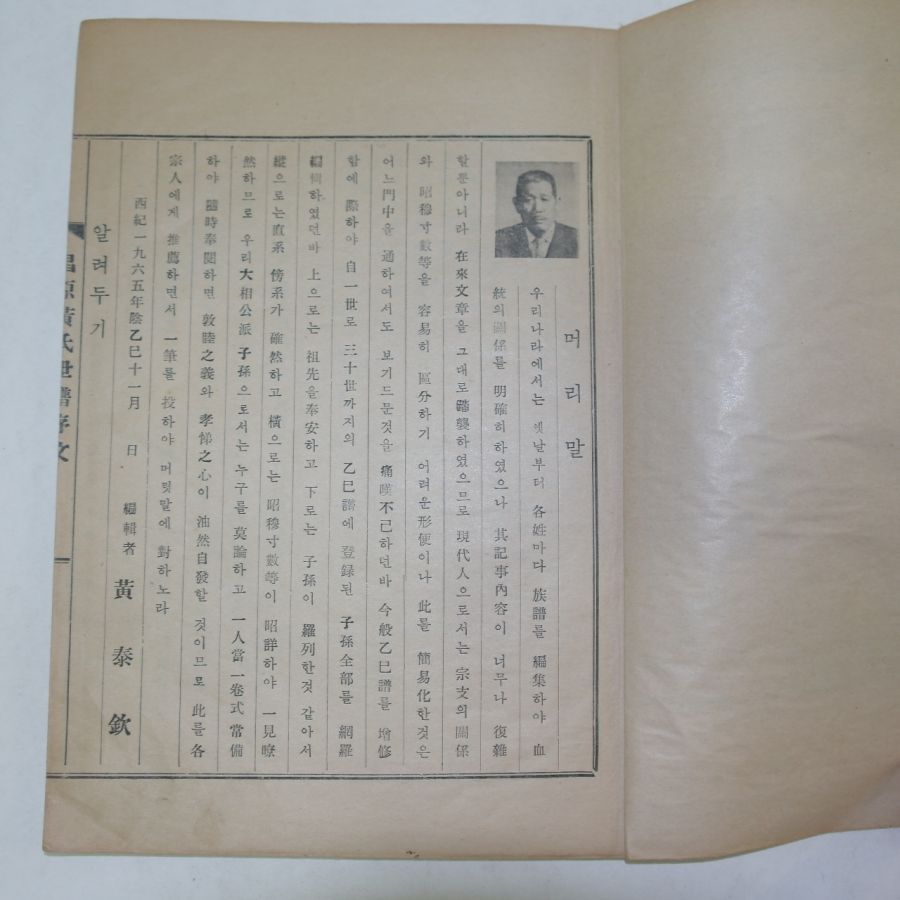 머리말
우리나라에서는 옛날부터 各姓마다 族譜를 編集하야 血
統의 關係를 明確히 하였으나 其記事內容이 너무나 復雜
할뿐아니라 在來文章을 그대로 踏襲하였으므로 現代人으로서는 宗支의 關係
와 昭穆寸數等을 容易히 區分하기 어려운形便이나 此를 簡易化한것은
어느門中을 通하여서도 보기드문것을 痛嘆不已하던바 今般乙巳譜를 增修
함에 際하야 自一世로 三十世까지의 乙巳譜에 登録된 子孫全部를 網羅
編輯하였던바 上으로는 祖先을奉安하고 下로는 子孫이 羅列한것 같아서
縱으로는直系 傍系가 確然하고 橫으로는 昭穆寸數等이 昭詳하야 一見瞭
然하므로 우리大相公派 子孫으로서는누구를 莫論하고 一人當一卷式常備
하야 隨時奉閱하면 敦睦之義와 孝悌之心이 油然自發할 것이므로 此를各
宗人에게 推薦하면서 一筆를 投하야 머릿말에 對하노라
西紀一九六五年陰乙巳十一月 日
編輯者 黃泰欽
알려두기
昌原黃氏世譜序文